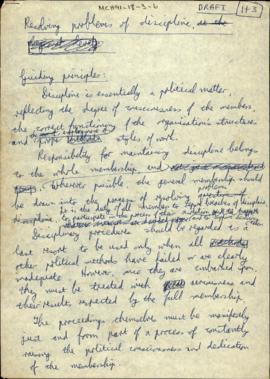 MCH91-18-3-6
DRAFT
1+3
Resolving problems of discipline, at the
Guiding principles:
Discipline is essentially a political matter,
reflecting the degree of consciousness of the members,
the correct functioning of the organisation's structures
and styles of work.
Responsibility for maintaining discipline belongs
to the whole membership, and
Wherever possible, the general membership should
be drawn into the process of resolving problems
discipline
Disciplinary procedure should be regarded as a
last resort to be used only when all
other political methods have failed or are clearly
inadequate. However, once they are embarked upon,
they must be treated with seriousness and
their results respected by the full membership.
The proceedings themselves must be manifestly
just and form part of a process of constantly
raising the political consciousness and dedication
of the membership.